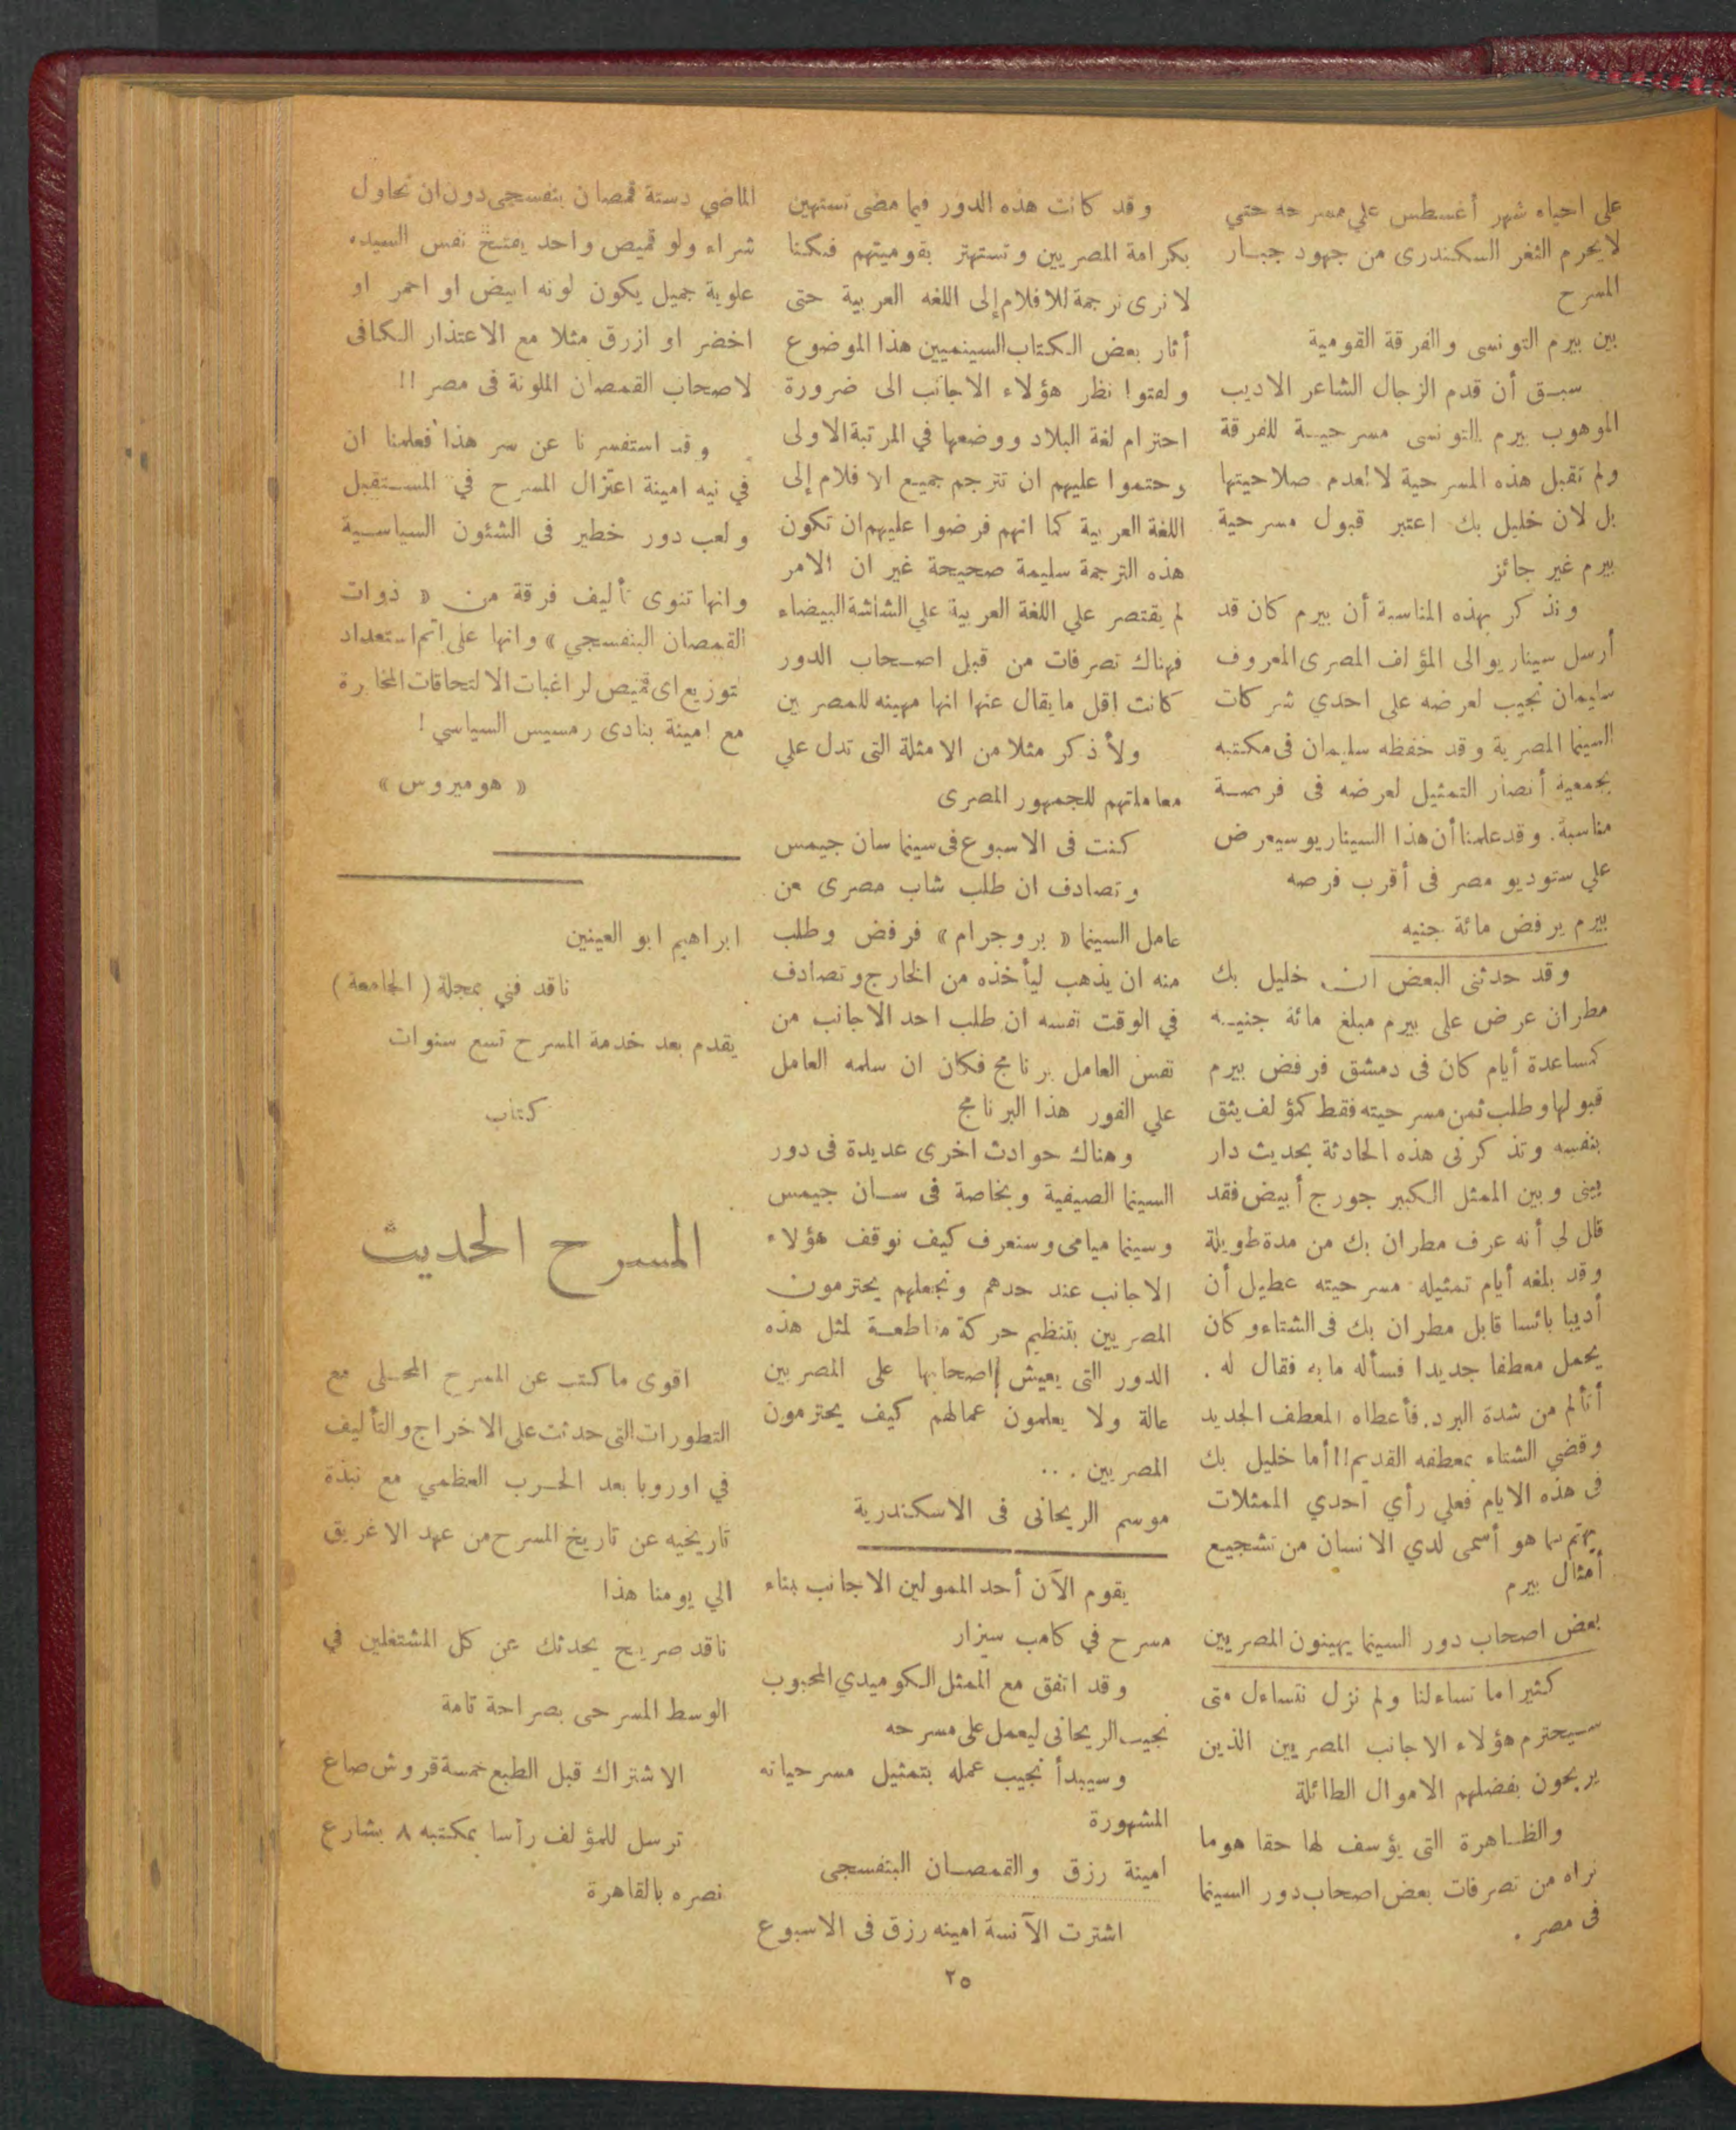 على احياه شهر أغسطس علي مسرحه حتي
لا يحرم الثغر السكندرى من جهود جبار
المسرح
بين بيرم التونسى والفرقة القومية
سبق أن قدم الزجال الشاعر الاديب
الموهوب بيرم التونسى مسرحية للفرقة
ولم تقبل هذه المسرحية لا لعدم صلاحيتها
بل لان خليل بك اعتبر قبول مسرحية
بيرم غير جائز
ونذكر بهذه المناسبة أن بيرم كان قد
أرسل سيناريو الى المؤلف المصرى المعروف
سليمان نجيب لعرضه على احدي شركات
السينما المصرية وقد حفظه سليمان فى مكتبه
بجمعية أنصار التمثيل لعرضه فى فرصة
مناسبة. وقد علمنا أن هذا السيناريو سيعرض
علي ستوديو مصر فى أقرب فرصه
بيرم يرفض مائة جنيه
وقد حدثنى البعض ان خليل بك
مطران عرض على بيرم مبلغ مائة جنيه
كمساعدة أيام كان فى دمشق فرفض بيرم
قبولها وطلب ثمن مسرحيته فقط كمؤلف يثق
بنفسه وتذكرنى هذه الحادثة بحديث دار
بينى وبين الممثل الكبير جورج أبيض فقد
قال لي أنه عرف مطران بك من مدة طويلة
وقد بلغه أيام تمثيله مسرحيته عطيل أن
أديبا بائسا قابل مطران بك فى الشتاء وكان
يحمل معطفا جديدا فسأله ما به فقال له .
أتألم من شدة البرد. فأعطاه المعطف الجديد
وقضي الشتاء بمعطفه القديم!! أما خليل بك
فى هذه الايام فعلي رأي احدي الممثلات
يهتم بما هو أسمى لدي الانسان من تشجيع
أمثال بيرم
بعض اصحاب دور السينما يهينون المصريين
كثيرا ما تساءلنا ولم نزل نتساءل متى
سيحترم هؤلاء الاجانب المصريين الذين
يربحون بفضلهم الاموال الطائلة
والظاهرة التى يؤسف لها حقا هو ما
نراه من تصرفات بعض اصحاب دور السينما
فى مصر .
وقد كانت هذه الدور فيما مضى تستهين
بكرامة المصريين وتستهتر بقوميتهم فكنا
لا نرى ترجمة للافلام إلى اللغه العربية حتى
أثار بعض الكتاب السينميين هذا الموضوع
ولفتوا نظر هؤلاء الاجانب الى ضرورة
احترام لغة البلاد ووضعها في المرتبة الاولى
وحتموا عليهم ان تترجم جميع الافلام إلى
اللغة العربية كما انهم فرضوا عليهم ان تكون
هذه الترجمة سليمة صحيحة غير ان الامر
لم يقتصر علي اللغة العربية علي الشاشة البيضاء
فهناك تصرفات من قبل اصحاب الدور
كانت اقل ما يقال عنها انها مهينه للمصريين
ولأذكر مثلا من الامثلة التى تدل علي
معاملتهم للجمهور المصرى
كنت فى الاسبوع فى سينما سان جيمس
وتصادف ان طلب شاب مصرى من
عامل السينما « بروجرام » فرفض وطلب
منه ان يذهب ليأخذه من الخارج وتصادف
في الوقت نفسه ان طلب احد الاجانب من
نفس العامل برنامج فكان ان سلمه العامل
علي الفور هذا البرنامج
وهناك حوادث اخرى عديدة فى دور
السينما الصيفية وبخاصة فى سان جيمس
وسينما ميامى وسنعرف كيف نوقف هؤلاء
الاجانب عند حدهم ونجعلهم يحترمون
المصريين بتنظيم حركة مقاطعة لمثل هذه
الدور التى يعيش إصحابها على المصريين
عالة ولا يعلمون عمالهم كيف يحترمون
المصريين . ..
موسم الريحانى فى الاسكندرية
يقوم الآن أحد الممولين الاجانب بناء
مسرح في كامب سيزار
وقد اتفق مع الممثل الكوميدي المحبوب
نجيب الريحانى ليعمل على مسرحه
وسيبدأ نجيب عمله بتمثيل مسرحياته
المشهورة
امينة رزق والقمصان البنفسجى
اشترت الآنسة امينه رزق فى الاسبوع
الماضي دستة قمصان بنفسجى دون ان تحاول
شراء ولو قميص واحد يفتح نفس السيده
علوية جميل يكون لونه ابيض او احمر او
اخضر او ازرق مثلا مع الاعتذار الكافى
لاصحاب القمصان الملونة فى مصر !!
وقد استفسرنا عن سر هذا فعلمنا ان
في نيه امينة اعتزال المسرح في المستقبل
ولعب دور خطير فى الشئون السياسية
وانها تنوى تأليف فرقة من « ذوات
القمصان البنفسجي » وانها على اتم استعداد
لتوزيع اى قميص لراغبات الالتحاقات المخابرة
مع امينة بنادى رمسيس السياسي !
« هوميروس »
ابراهيم ابو العينين
ناقد فني بمجلة ( الجامعة )
يقدم بعد خدمة المسرح تسع سنوات
كتاب
المسرح الحديث
اقوى ما كتب عن المسرح المحلى مع
التطورات التى حدثت على الاخراج والتأليف
في اوروبا بعد الحرب العظمي مع نبذة
تاريخيه عن تاريخ المسرح من عهد الاغريق
الي يومنا هذا
ناقد صريح يحدثك عن كل المشتغلين في
الوسط المسرحى بصراحة تامة
الاشتراك قبل الطبع خمسة قروش صاغ
ترسل للمؤلف رأسا بمكتبه ٨ بشارع
نصره بالقاهرة
٢٥